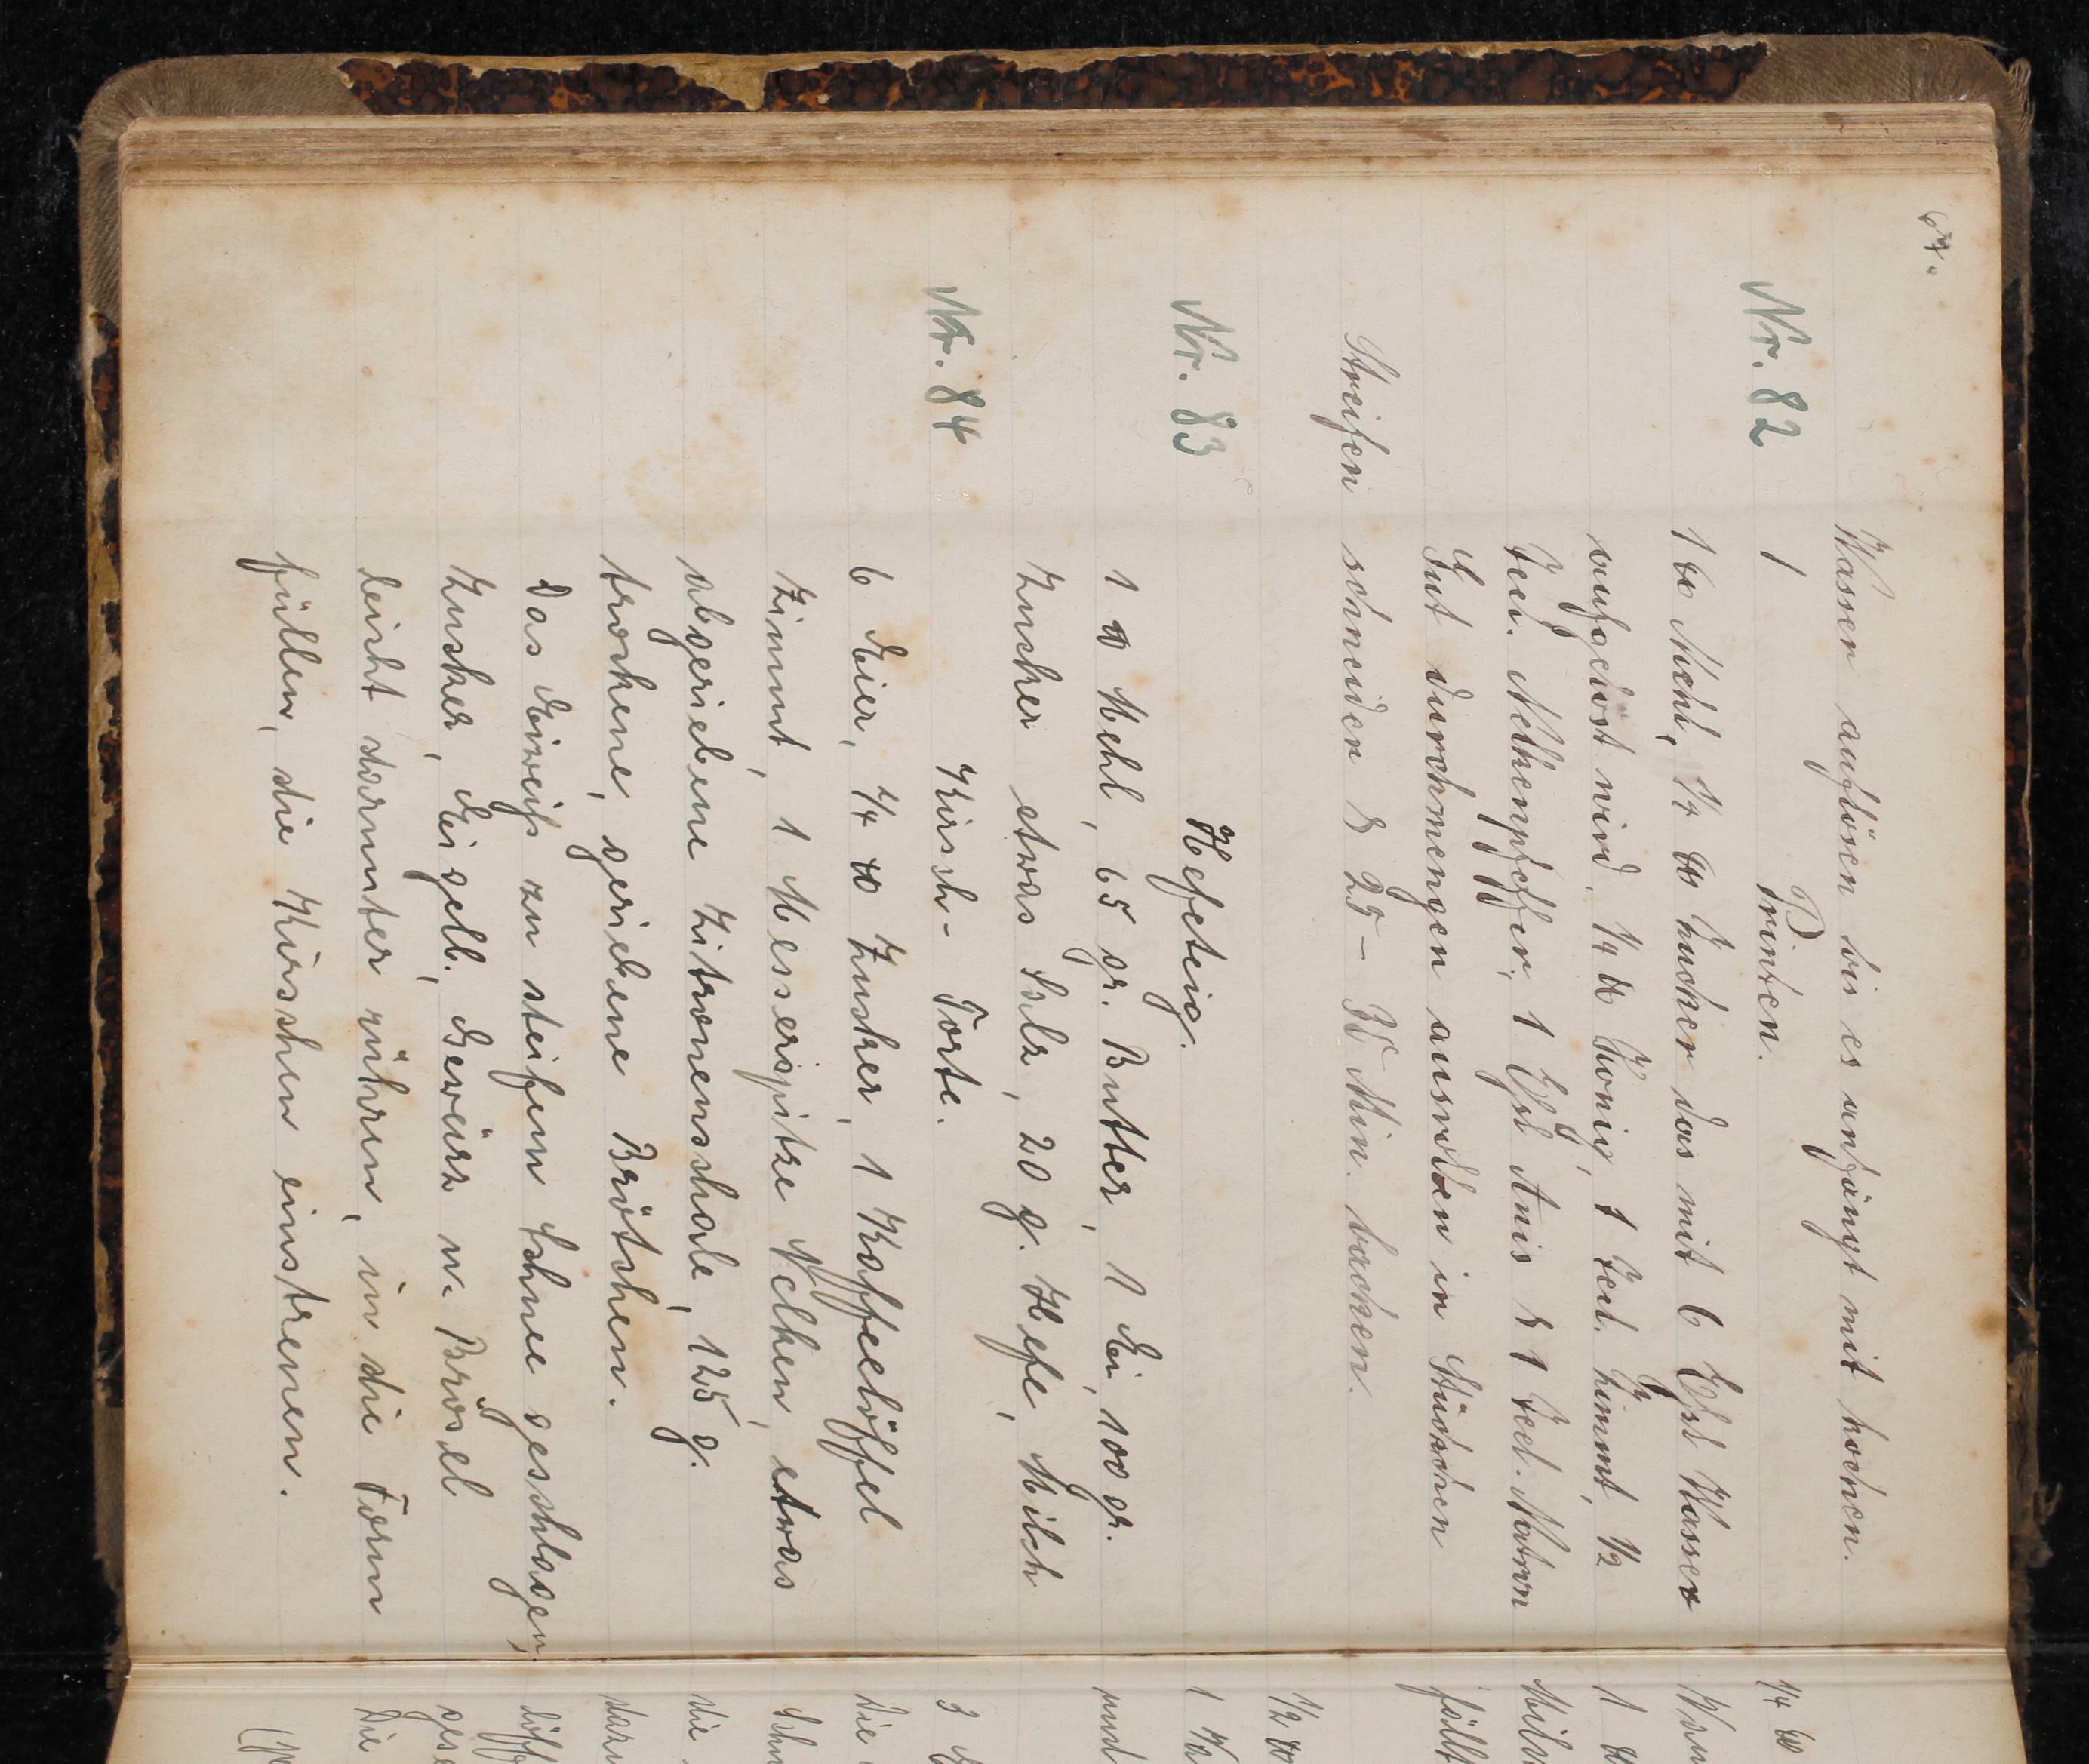 67.
Wasser auflösen bis es anfängt mit kochen.
Nr. 82 Printen.
1 ℔ Mehl, 1/4 ℔ Zucker das mit 6 Eßl Wasser
aufgelöst wird, 1/4 ℔ Honig, 1 Teel. Zimmt, 1/2
Teel. Nelkenpfeffer, 1 Eßl Anis & 1 Teel. Natron
Gut durchmengen ausrollen in Stückchen
Streifen schneiden & 25 - 35 Min. backen.
Nr. 83 Hefeteig.
1 ℔ Mehl, 65 gr. Butter, 1 Ei, 100 gr.
Zucker etwas Salz, 20 g. Hefe, Milch
Nr. 84 Kirsch- Torte.
6 Eier, 1/4 ℔ Zucker, 1 Kaffeelöffel
Zimmt, 1 Messerspitze Nelken, etwas
abgeriebene Zitronenschale, 125 g.
trockene, geriebene Brötchen.
Das Eiweiß zu steifem Schnee geschlagen,
Zucker, Eigelb, Gewürz u. Brösel
leicht darunter rühren, in die Form
füllen, die Kirschen einstreuen.
1/4 ℔
1 ℔
Milch
fällt
1/2 ℔
1 1/2
und
3 E
Die
die
löff
Die